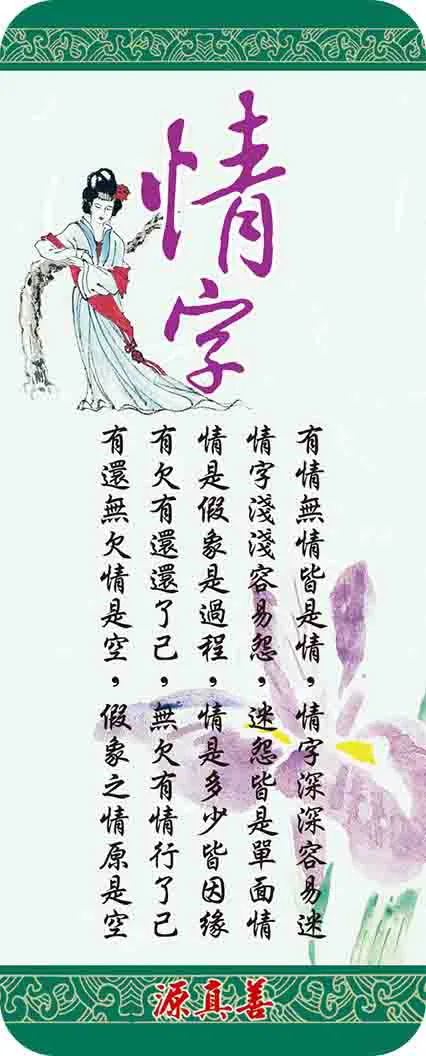 情字
有情無情皆是情，情字深深容易迷
情字淺淺容易怨，迷怨皆是單面情
情是假象是過程，情是多少皆因緣
有欠有還還了己，無欠有情行了己
有還無欠情是空，假象之情原是空
源真善